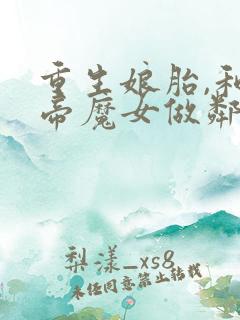 重生娘胎,和
帝魔女做鄰
梨漾_xs8
未任同意禁止转载